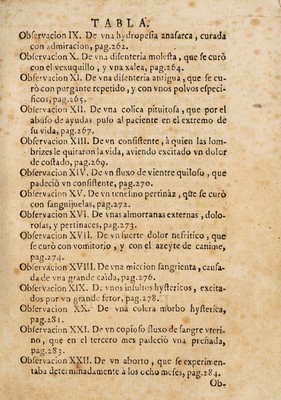 TABLA.
Observacion IX. De vna hydropesia anasarca, curada
con admiracion, pag.262.
Observacion X. De vna disenteria molesta, que se curò
con el vexuquillo, y vna xalea, pag.264.
Observacion XI. De vna disenteria antigua, que se cu-
rò con purgante repetido, y con vnos polvos especi-
ficos, pag.265.
Observacion XII. De vna colica pituitosa, que por el
abuso de ayudas puso al paciente en el extremo de
su vida, pag.267.
Observacion XIII. De vn consistente, à quien las lom-
brizes le quitaron la vida, aviendo excitado vn dolor
de costado, pag.269.
Observacion XIV. De vn fluxo de vientre quiloso, que
padeciò vn consistente, pag.270.
Observacion XV. De vn tenesmo pertinàz, que se curò
con sanguijuelas, pag.272.
Observacion XVI. De vnas almorranas externas, dolo-
rosas, y pertinaces, pag.273.
Observacion XVII. De vn fuerte dolor nefritico, que
se curò con vomitorio, y con el azeyte de canime,
pag.274.
Observacion XVIII. De vna miccion sangrienta, causa-
da de vna grande caida, pag.276.
Observacion XIX. De vnos insultos hystericos, excita-
dos por vn grande fetor, pag.278.
Observacion XX. De vna colera morbo hysterica,
pag.281.
Observacion XXI. De vn copioso fluxo de sangre vteri-
no, que en el tercero mes padeciò vna preñada,
pag.283.
Observacion XXII. De vn aborto, que se experimen-
taba determinadamente à los ocho meses, pag.284.
Ob-